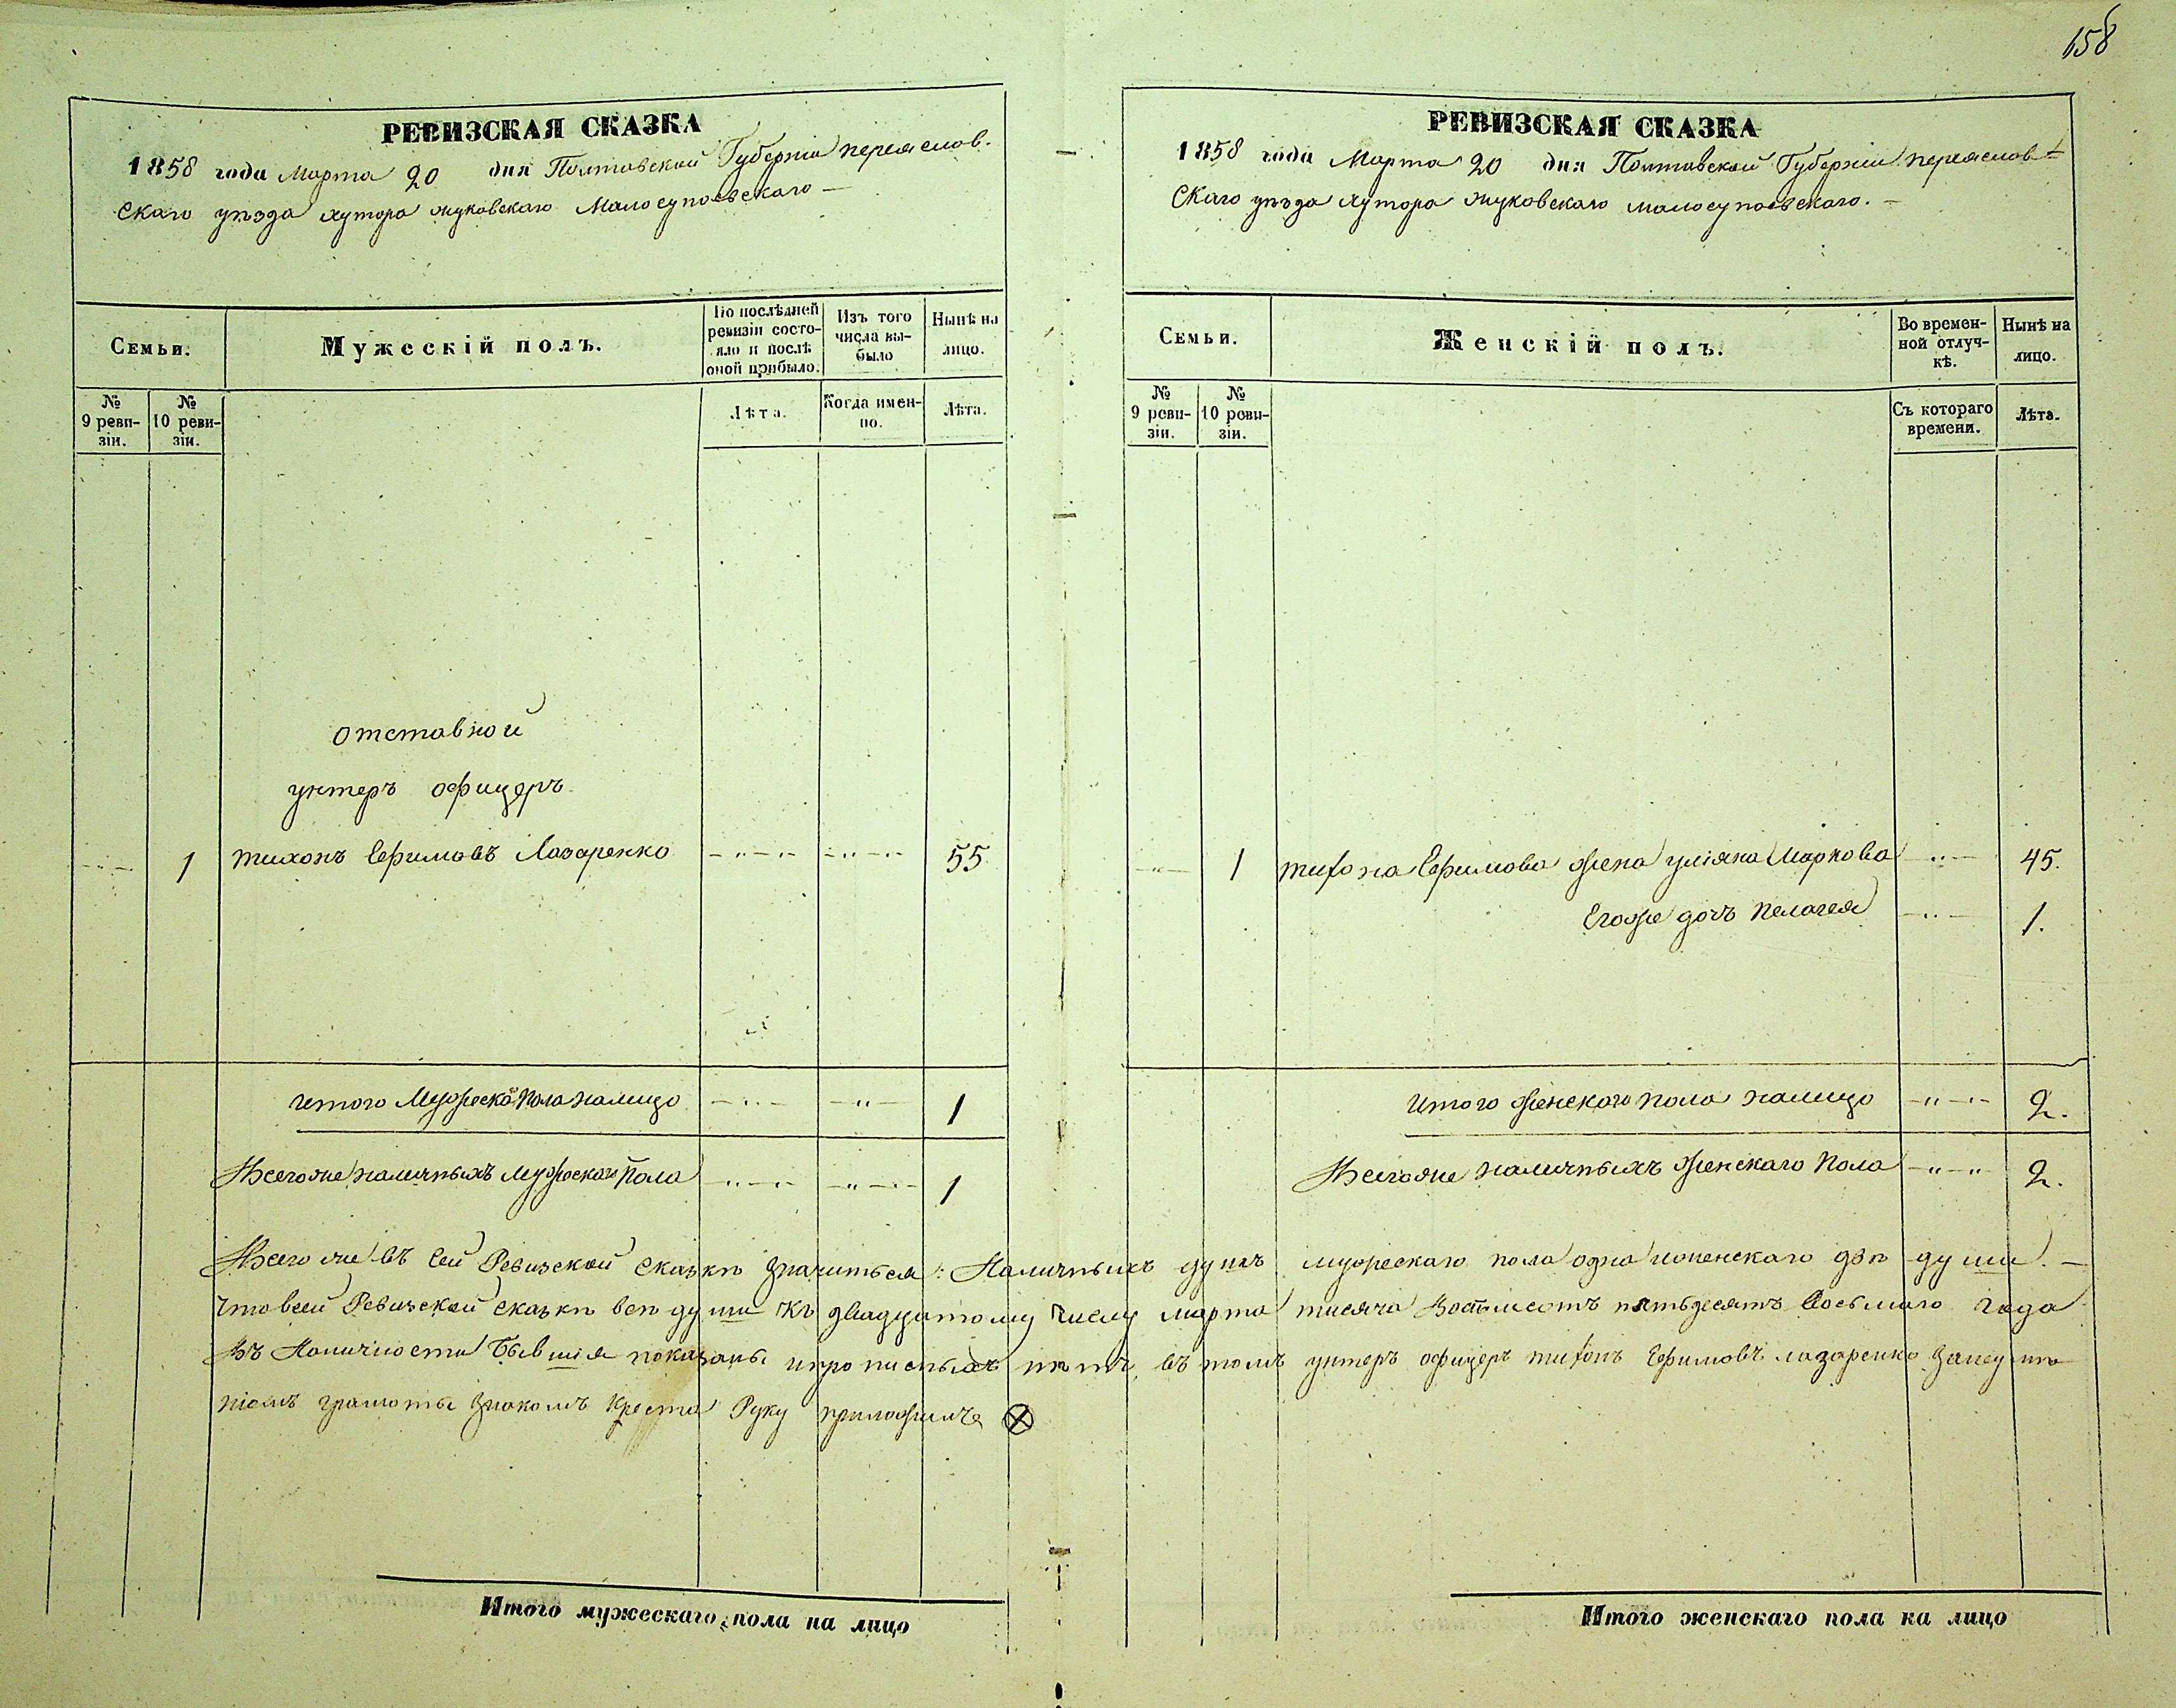 158
РЕВИЗСКАЯ СКАЗКА
1858 года Марта 20 дня Полтавской Губерніи переяслов-
Скаго уѣзда хутора жуковскаго Малосупоевскаго —
Семьи.
Мужескій полъ.
По послѣдней ревизіи состо-
яло и послѣ оной прибыло.
Изъ того числа вы-
было
Нынѣ на лицо.
№ 9 реви-
зіи.
№ 10 реви-
зіи.
Лѣта.
Когда имен-
но.
Лѣта.
отставной
унтеръ офицеръ
1 тихонъ Ефимовъ Лазаренко 55
итого Мужеско Пола налицо 1
Всего же наличныхъ мужеска Пола 1
РЕВИЗСКАЯ СКАЗКА
1858 года Марта 20 дня Полтавской Губерніи переяслов-
Скаго уѣзда хутора жуковскаго малосупоевскаго. —
Семьи.
Женскій полъ.
Во времен-
ной отлуч-
кѣ.
Нынѣ на лицо.
№ 9 реви-
зіи.
№ 10 реви-
зіи.
Съ котораго времени.
Лѣта.
1 тихона Ефимова жена уліяна Маркова 45.
Егоже дочъ пелагея 1.
Итого женскаго пола налицо 2.
Всего же наличныхъ женскаго Пола 2.
Всего же въ сей Ревизской сказкѣ значиться: Наличныхъ душъ мужескаго пола одна иженскаго двѣ души. —
что всей Ревизской сказкѣ всѣ души къ двадцатому числу марта тисяча восемьсотъ пятьдесятъ восьмаго года
въ Наличности бывшія показаны ипрописныхъ нѣтъ, въ томъ унтеръ офицеръ тихонъ Ефимовъ лазаренко занеумѣ
ніемъ грамоты знакомъ креста Руку приложилъ ⊗
Итого мужескаго пола на лицо
Итого женскаго пола на лицо